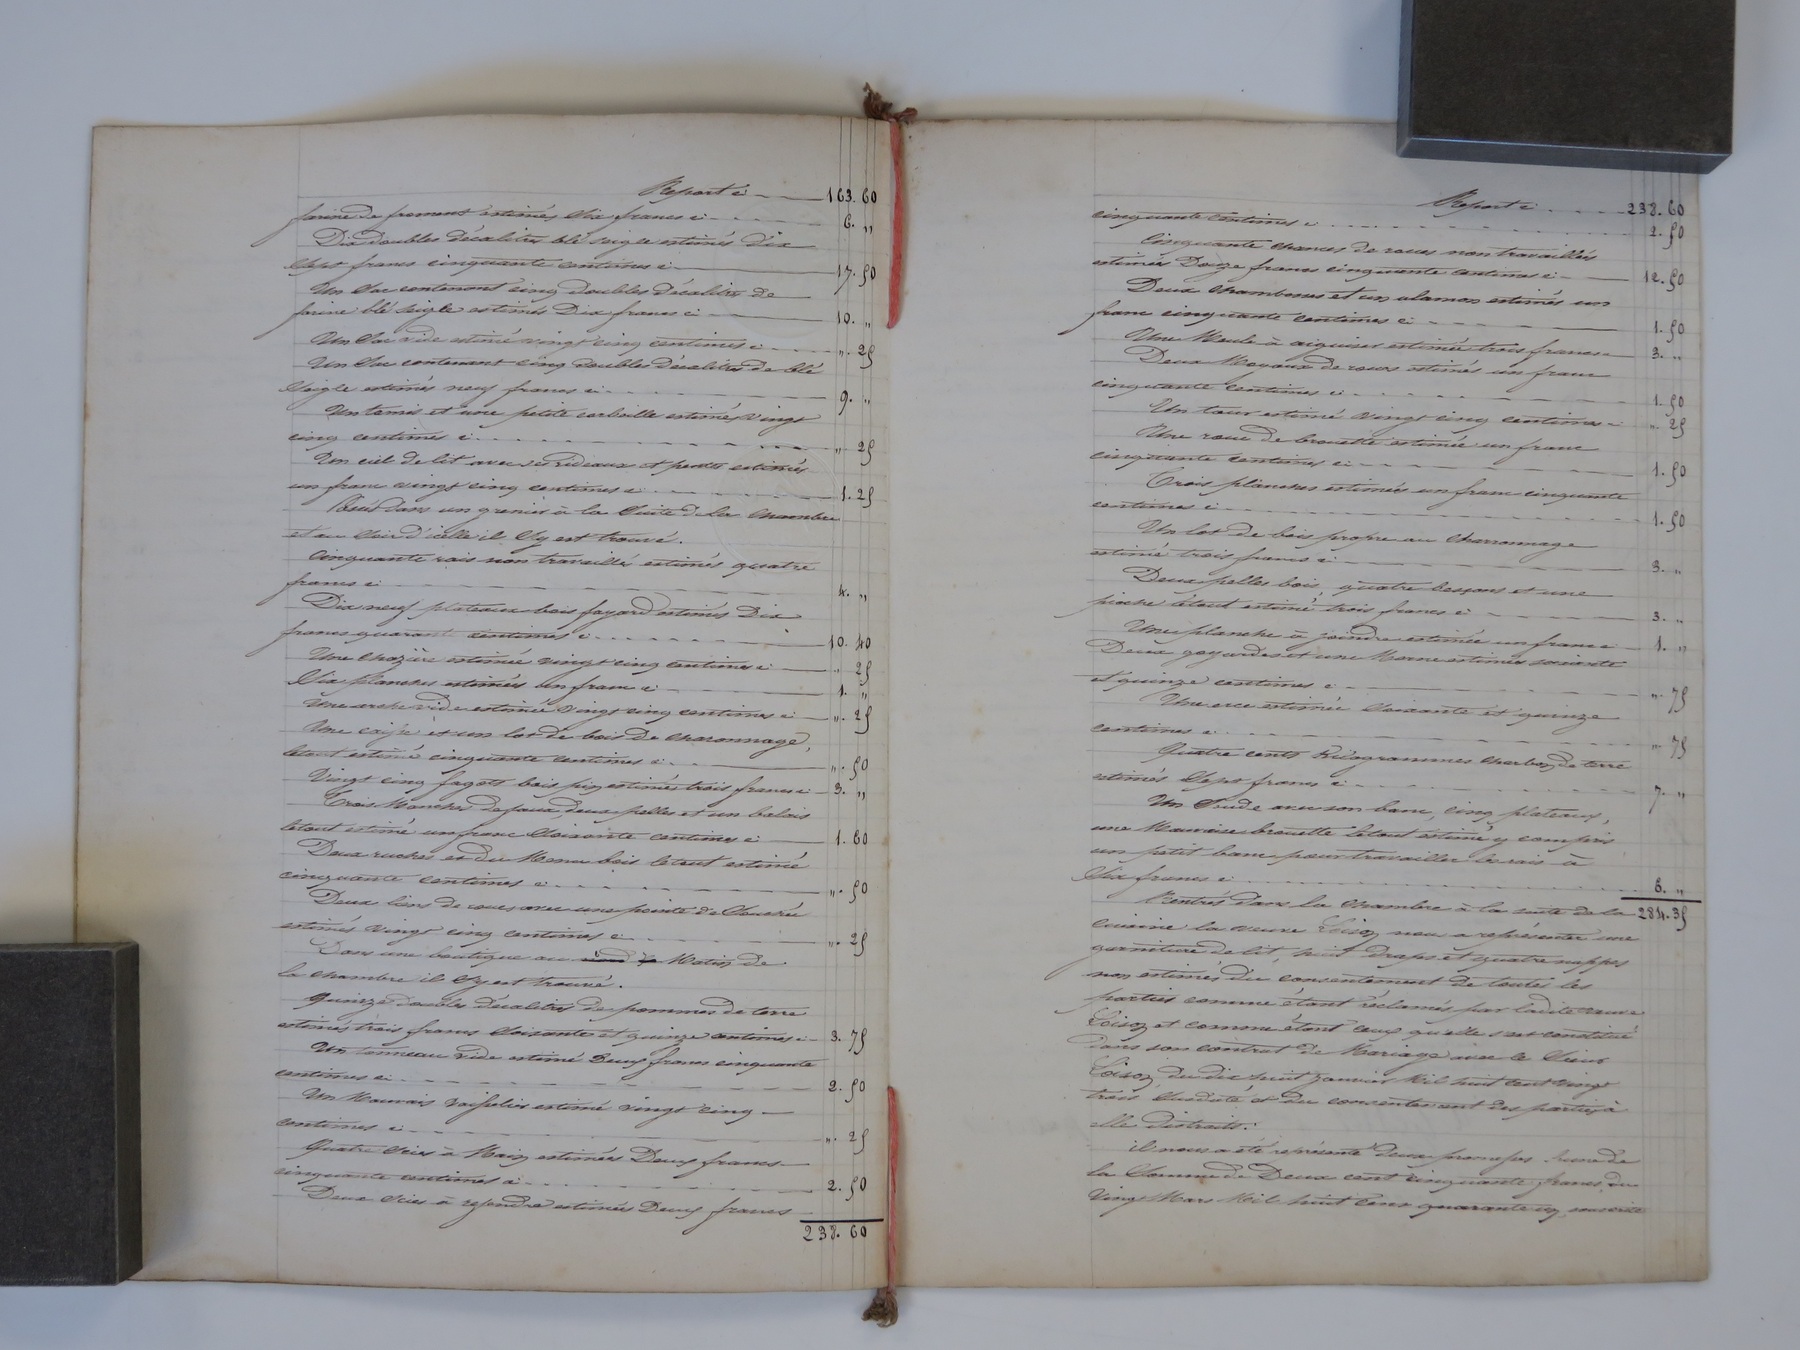 Report ci 163. 60
farine de froment estimés Six francs ci 6. "
Dix doubles décalitres blé seigle estimés dix
Sept francs cinquante centimes ci 17. 50
Un Sac contenant cinq doubles décalitres de
farine blé seigle estimés Dix francs ci 10. "
Un Sac vide estimé vingt cinq centimes ci ". 25
Un Sac contenant cinq doubles décalitres de blé
Seigle estimés neuf francs ci 9. "
Un tamis et une petite corbeille estimés vingt
cinq centimes ci " 25
Un ciel de lit avec ses rideaux et pentes estimés
un franc vingt cinq centimes ci 1. 25
dans un grenier à la Suite de la chambre
et au d'icelle il S'y est trouvé.
Cinquante rais non travaillés estimés quatre
francs ci 4. "
Dix neuf plateaux bois fayard estimés Dix
francs quarante centimes ci 10. 40
Une estimée vingt cinq centimes ci " 25
Six planches estimées un franc ci 1. "
Une arche vide estimée vingt cinq centimes ci ". 25
Une et un lot de bois de charonnage,
letout estimé cinquante centimes ci ". 50
Vingt cinq fagots bois pin estimés trois francs ci 3. "
Trois Manches de faux, deux pelles et un balais
letout estimé un franc Soixante centimes ci 1. 60
Deux ruches et du Menu bois letout estimé
cinquante centimes ci ". 50
Deux liens de roues avec une pointe de
estimés vingt cinq centimes ci ". 25
Dans une boutique au Matin de
la chambre il S'y est trouvé.
Quinze doubles décalitres de pommes de terre
estimés trois francs Soixante et quinze centimes ci 3. 75
Un tonneau vide estimé Deux francs cinquante
centimes ci 2. 50
Un Mauvais estimé vingt cinq
centimes ci ". 25
Quatre Scies à Main estimées Deux francs
cinquante centimes ci 2. 50
Deux Scies à refendre estimées Deux francs
238. 60
Report ci 238. 60
cinquante centimes ci 2. 50
Cinquante de roues non travaillés
estimés Douze francs cinquante centimes ci 12. 50
Deux et un estimés un
franc cinquante centimes ci 1. 50
Une Meule à aiguiser estimée trois francs 3. "
Deux Moyeux de roues estimés un franc
cinquante centimes ci 1. 50
Un tour estimé vingt cinq centimes ci ". 25
Une roue de brouette estimée un franc
cinquante centimes ci 1. 50
Trois planches estimées un franc cinquante
centimes ci 1. 50
Un lot de bois propre au Charronnage
estimé trois francs ci 3. "
Deux pelles bois, quatre et une
pioche letout estimé trois francs ci 3. "
Une planche à joindre estimée un franc ci 1. "
Deux et une estimées soixante
et quinze centimes ci ". 75
Une estimée Soixante et quinze
centimes ci ". 75
Quatre cents Kilogrammes charbon de terre
estimés Sept francs ci 7. "
Un avec son banc, cinq plateaux,
une Mauvaise brouette letout estimé y compris
un petit banc pour travailler les rais à
Six francs ci 6. "
284. 35
Rentrés dans la chambre à la suite de la
cuisine la veuve Loison nous a représenté une
garniture de lit, huit draps et quatre nappes
non estimés du consentement de toutes les
parties comme étant réclamés par ladite veuve
Loison et comme étant ceux qu'elle s'est constitué
dans son contrat de Mariage avec le Sieur
Loison du dix huit janvier Mil huit cent vingt
trois, et du consentement des parties à
elle distraits.
il nous a été représenté deux promesses l'une de
la Somme de Deux cent cinquante francs, du
Vingt Mars Mil huit cent quarante un, souscrite